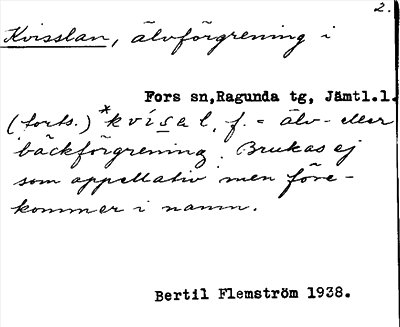 2.
Kvisslan, älvförgrening i
Fors sn,Ragunda tg, Jämtl.l.
(forts.) *kvísal, f. = älv- eller
bäckförgrening. Brukas ej
som appellativ men före-
kommer i namn.
Bertil Flemström 1938.